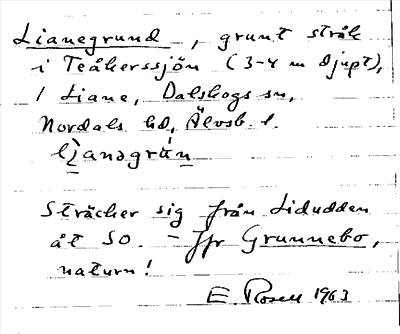 Lianegrund, grunt stråk
i Teåkerssjön (3-4 m djupt),
/ Liane, Dalskogs sn,
Nordals hd, Älvsb. l.
Sträcker sig från Lidudden
åt SO. - Jfr Grunnebo,
naturn!
E. Rosell 1963